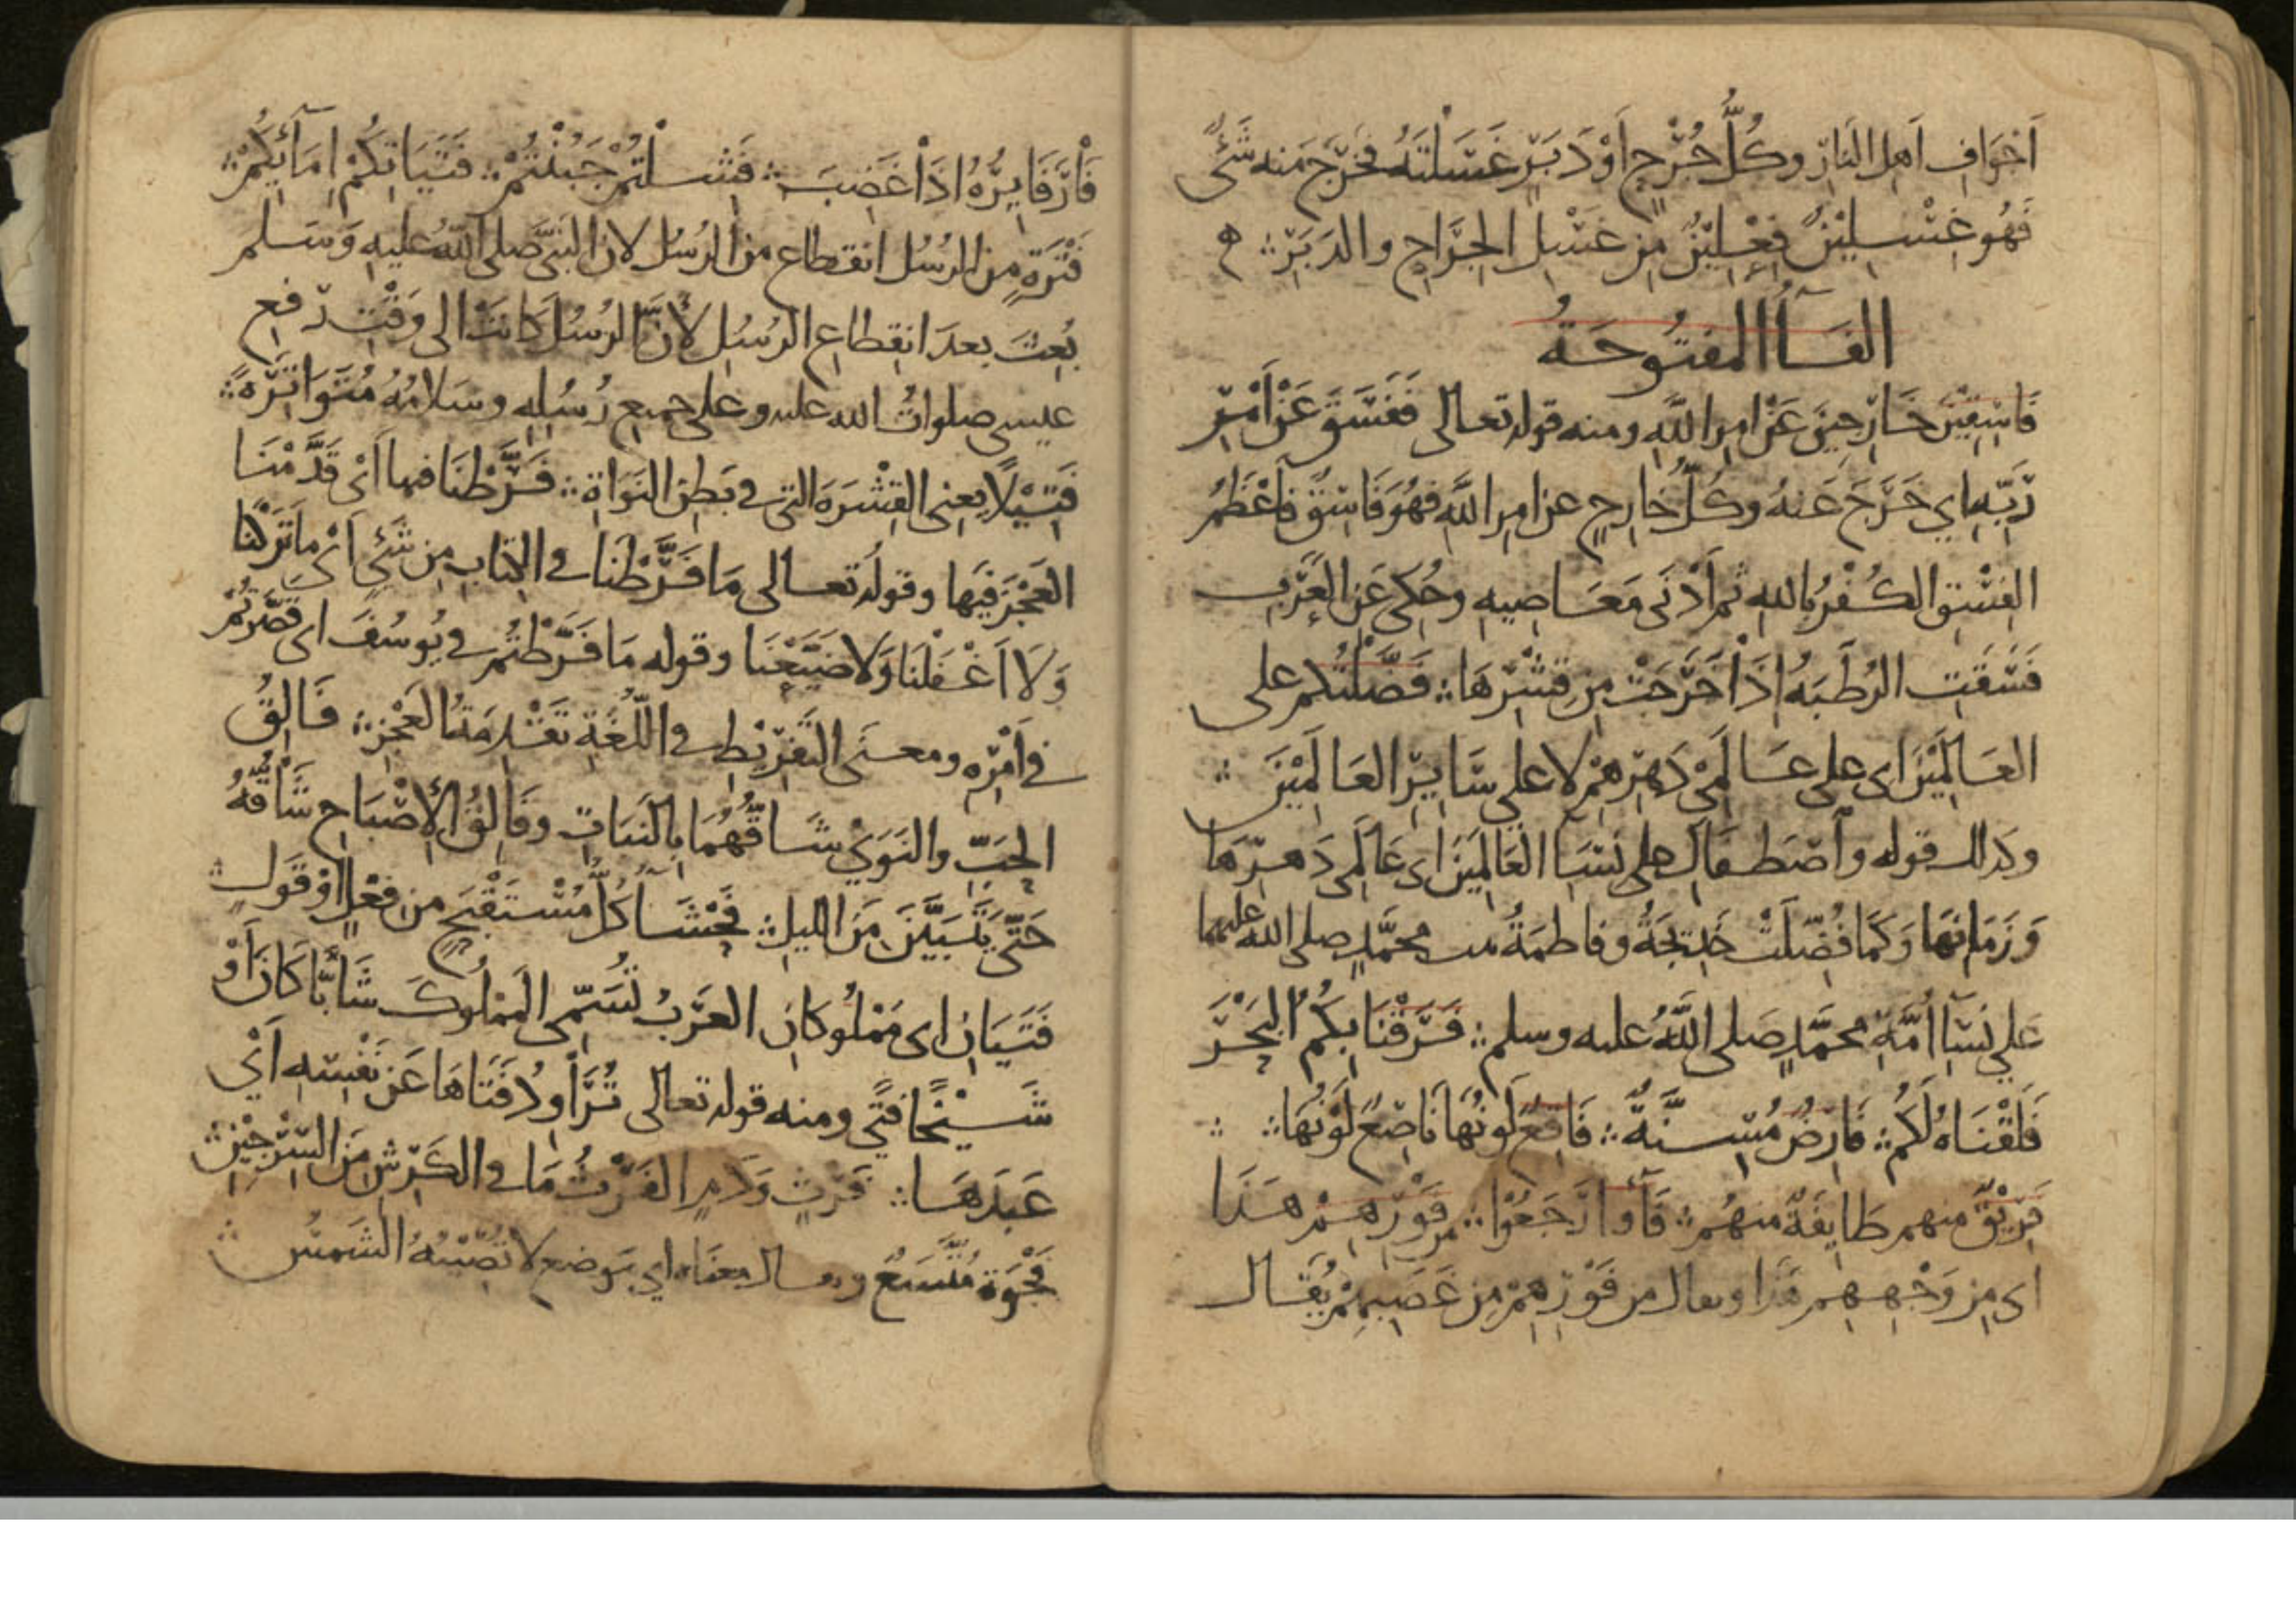 اَجْوَافِ اَهلِ النَارِ وكُلُّ جُرْحٍ أوْ دَبَرٍ غَسَلْتَهُ فخَرَجَ منه شَئٌ
فَهُو غِسْلِيْنٌ فِعْلِيْنٌ مِن غَسْلِ الجِرَاحِ والدَبَرِ
الفَآءُ المفتُوحَةُ
فَاسِقِيْنَ خَارِجِينَ عَنْ امِر اللَّهِ ومنه قوله تعالى فَفَسَقَ عَنْ اَمْرِ
رَبِّهِ اي خَرَجَ عَنهُ وكُلُّ خَارِجٍ عن امِر اللَّهِ فهُوَ فَاسِقٌ فاَعْظَمُ
الفِسْقِ الكُفْرُ بالله ثم اَدْنَى مَعَاصِيهِ وحُكِىَ عَنِ العَرَبِ
فَسَقَتِ الرُطَبَةُ اِذَاْ خَرَجَتْ مِن قِشْرِهَا فَضَّلْتُكم على
العَالَمِيْنَ اى على عَالَمِي دَهِرِهِمْ لا على سَايِرِ العَالَمِيْنَ
وكذلك قوله وآصطفاكِ على نِسَآءِ العَالَمِيَن اى عَالَمِى دَهرِهَا
وَزَمَانِهَا وَكَما فُضِّلَتْ خَدِيجَةُ وفاطمَةُ بنت محمَّدٍ صلى الله عليهما
عَلي نِسَآءِ اُمَّةِ محمَّدٍ صَلى اللَّهُ عليه وسلم فَرَقْنَا بِكُمُ البَحْرَ
فَلَقْنَاهُ لَكُم فَارِضٌ مُسِنَّةٌ فَاقِعٌ لَونُهَا نَاصِعٌ لَوْنُهَا
فَرِيْقٌ منهم طَايِفَةٌ منهُم فَآءوا رَجَعُوْا مِن فَوْرِهِمْ هَذَا
اى مِن وَجْهِهِم هَذَا ويقال من فَوْرِهِمْ مِن غَضَبِهِمْ يُقَال
فَاْرَ فَايِرُهُ اِذَاْ غَضِبَ فَشِلْتُمْ جَبُنْتُمْ فَتَيَاتِكُمْ اِمَآئِكُمْ
فَتْرَةٍ من الرُسُل انقطاع من الرُسُل لان النَبىَّ صلى اللهُ عليهِ وَسَلم
بُعِثَ بعدَ انِقِطاعِ الرُسُلِ لأنَّ الرُسُلَ كَانَتْ الى وَقْتِ رَفعِ
عيسى صلواتُ الله عليه وعلى جميعِ رُسُلِهِ وسَلامُهُ مُتَوَاتِرَةً
فَتِيْلًا يعنِى القِشْرَةَ التى فى بَطِن النَوَاةِ فَرَّطْنَا فيها اَىْ قَدَّمْنَا
العَجْزَ فيَها وقولُه تعالى مَا فَرَّطْنَا فى الكِتابِ مِن شَئٍ اَىْ ما تَرَكْنَا
وَلَا اَغْفَلْنَا وَلَا ضَيَّعْنَا وقوله مَا فَرَّطْتُمْ فى يُوسُفَ اى قَصَّرتُمْ
فى اَمْرِهِ ومعنَى التَفرِيْطِ فى اللّغَةِ تَقْدِمَةُ العَجْزِ فَالِقُ
الحَبِّ والنَوَىْ شَاقُّهُمَا بِالنَبَاتِ وفَالِقُ الإِصْبَاحِ شَاْقُّهُ
حَتّى يَتَبَيَّنَ مِنَ الليلِ فَحْشَآءُ كُلُّ مُسْتَقْبَحٍ من فِعْلٍ اَوْ قَولٍ
فَتَيَانِ اى مَمْلُوكَانِ العَرَبُ تُسَمِّى المَمْلُوكَ شَابًّا كَانَ اَوْ
شَيْخًا فتًى ومنه قوله تعالى تُرَاْوِدُ فَتَاهَا عَن نَفْسِهِ اَىْ
عَبدَهَا فَرْثٍ وَدَمٍ الفَرْثُ مَا فى الكَرِشِ مِنَ السِرْجِيْنِ
فَجْوَةٍ مُتَّسَعٌ ويقال معنَاه اي مَوضعِ لا تُصِيْبُهُ الشَمْسُ